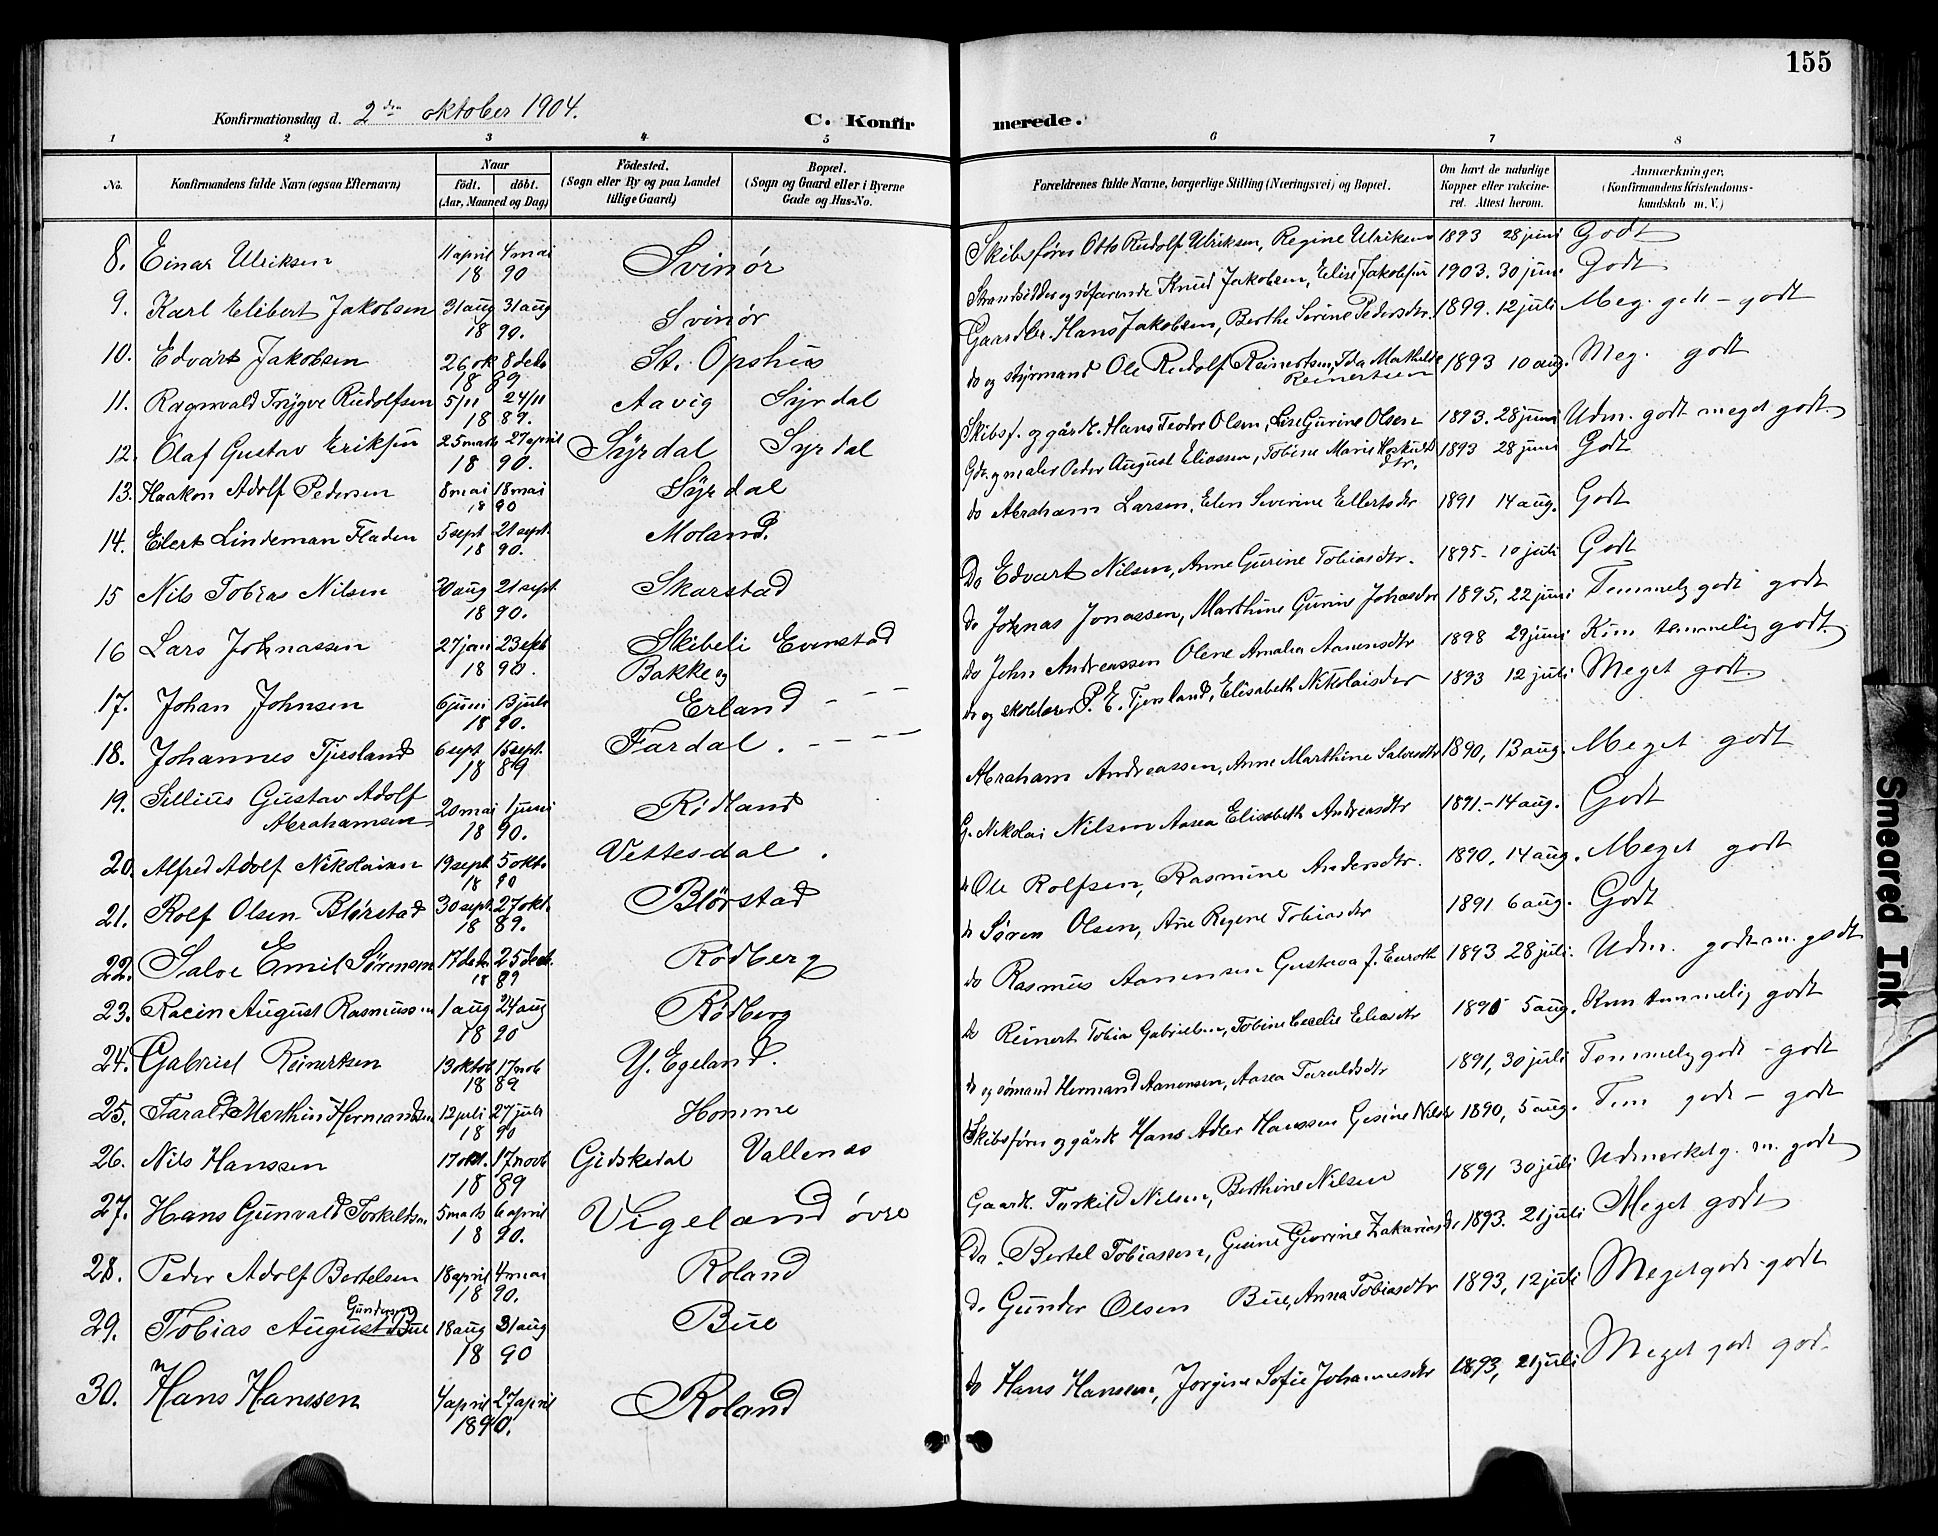 155
Konfirmationsdag d. 2den oktober 1904.
C. Konfirmerede.
1 2 3 4 5 6 7 8
No. Konfirmandens fulde Navn (ogsaa Efternavn) Naar födt. döbt. (Aar, Maaned og Dag) Födested. (Sogn eller By og paa Landet tillige Gaard) Bopæl. (Sogn og Gaard eller i Byerne Gade og Hus-No. Forældrenes fulde Navne, borgerlige Stilling (Næringsvei) og Bopæl. Om havt de naturlige Kopper eller vakcineret. Attest herom. Anmærkninger. (Konfirmandens Kristendomskundskab m. V.)
8. Einar Ulriksen 11 april 4 mai 18 90 Svinør Skibsfører Otto Rudolf Ulriksen, Regine Ulriksen 1893 28 juni Godt
9. Karl Elibert Jakobsen 31 aug 31 aug 18 90. Svinør Strandsidder og søfarende Knud Jakobsen, Elise Jakobsen 1903. 30 juni. Godt
10. Edvart Jakobsen 26 ok 8 deb 18 89 St. Opshus Gaardbr. Hans Jakobsen, Berthe Serine Pedersdtr. 1899. 12 juli Meg. godt - godt
11. Ragnvald Trygve Rudolfsen 5/11 24/11 18 89. Aavig Syrdal do og styrmand Ole Rudolf Reinertsen, Ida Mathilde Reinertsen 1893 10 aug. Meg. godt
12. Olaf Gustav Eriksen 25 marts 27 april 18 90. Syrdal Syrdal Skibsf. og gårdb. Hans Teodor Olsen, Lise Gurine Olsen 1893. 28 juni Udm. godt meget godt.
13. Haakon Adolf Pedersen 8 mai 18 mai 18 90 Syrdal Gdr. og maler Peder August Eliassen, Tobine Marie dtr. 1893 28 juni Godt
14. Eilert Lindeman Fladen 5 sept 21 sept. 18 90. Moland. do Abraham Larsen, Elen Severine Ellertsdtr 1891 14 aug. Godt
15 Nils Tobias Nilsen 30 aug 21 sept. 18 90. Skarstad Do Edvart Nilsen, Anne Gurine Tobiasdtr. 1895 - 10 juli Godt
16 Lars Johnassen 27 jan 23 feb 18 90. Skibeli Evenstad do Johnas Jonassen, Marthine Gurine Johasdtr 1895, 22 juni Temmelig godt godt
17. Johan Johnsen 6 juni 13 juli 18 90. Bakke og Erland - - - do John Andreassen Olene Amalia Aanensdtr 1898 29 juni Kun temmelig godt.
18. Johannes Tjersland 6 sept 15 sept. 18 89 Fardal. - - - do og skolelærer P. E. Tjersland, Elisabeth Nikolaisdtr 1893 12 juli Meget godt.
19. Sillius Gustav Adolf Abrahamsen 20 mai 1 juni 18 90. Rødland Abraham Andreassen, Anne Marthine Salvesdtr 1890, 13 aug. Meget godt
20. Alfred Adolf Nikolaisen 19 sept 5 okto 18 90 Vettesdal. G. Nikolai Nilsen Aasea Elisabeth Andersdtr 1891. - 14 aug. Godt
21. Rolf Olsen Blørstad 30 sept. 27 okt. 18 89. Blørstad do Ole Rolfsen, Rasmine Andersdtr. 1890, 14 aug. Meget godt
22. Salve Emil Sørensen 17 deb. 25 deb. 18 89 Rødberg do Søren Olsen, Ane Regine Tobiasdtr 1891 6 aug. Godt
23. Racin August Rasmussen 1 aug 24 aug 18 90 Rødberg do Rasmus Aanensen Gustava J. 1893 28 juli. Udm. godt m. godt
24. Gabriel Reinertsen 13 oktob 17 nob 18 89 Y. Egeland. do Reinert Tobia Gabrielsen, Tobine Cecelie Eliasdtr 1890 5 aug. Kun temmelig godt
25. Tarald Marthin Hermandsen 12 juli 27 juli 18 90 Homme do og sømand Hermand Aanensen, Aasea Taraldsdtr 1891, 30 juli Temmelig godt - godt
26. Nils Hanssen 17 okt. 17 novb 18 89 Gidskedal Vallenæs Skibsfører og gårdb Hans Adler Hanssen Gesine Nilsd 1890, 5 aug. Tem godt - godt
27. Hans Gunvald Torkildsen 5 marts 6 april 18 90. Vigeland øvre Gaardb. Torkild Nilsen, Berthine Nilsen 1891 30 juli Udmerket g. m. godt
28. Peder Adolf Bertelsen 18 april 4 mai 18 90. Roland Do. Bertel Tobiassen, Gesine Giorine Zakariasd. 1893. 21 juli Meget godt
29. Tobias August Gundersen Bue 18 aug 31 aug 18 90 Bue do Gunder Olsen Bue, Anna Tobiasdtr 1893, 12 juli Meget godt - godt
30. Hans Hanssen 4 april 27 april 1890. Roland do Hans Hansen, Jorgine Sofie Johannesdtr 1893, 21 juli Meget godt god.
Smeared Ink